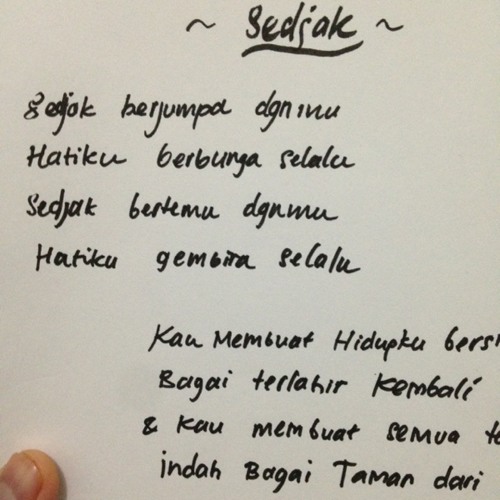 ~ Sedjak ~
Sedjak berjumpa dgnmu
Hatiku berbunga selalu
Sedjak bertemu dgnmu
Hatiku gembira selalu
Kau Membuat Hidupku
Bagai terlahir Kembali
& Kau membuat semua
indah Bagai Taman dari